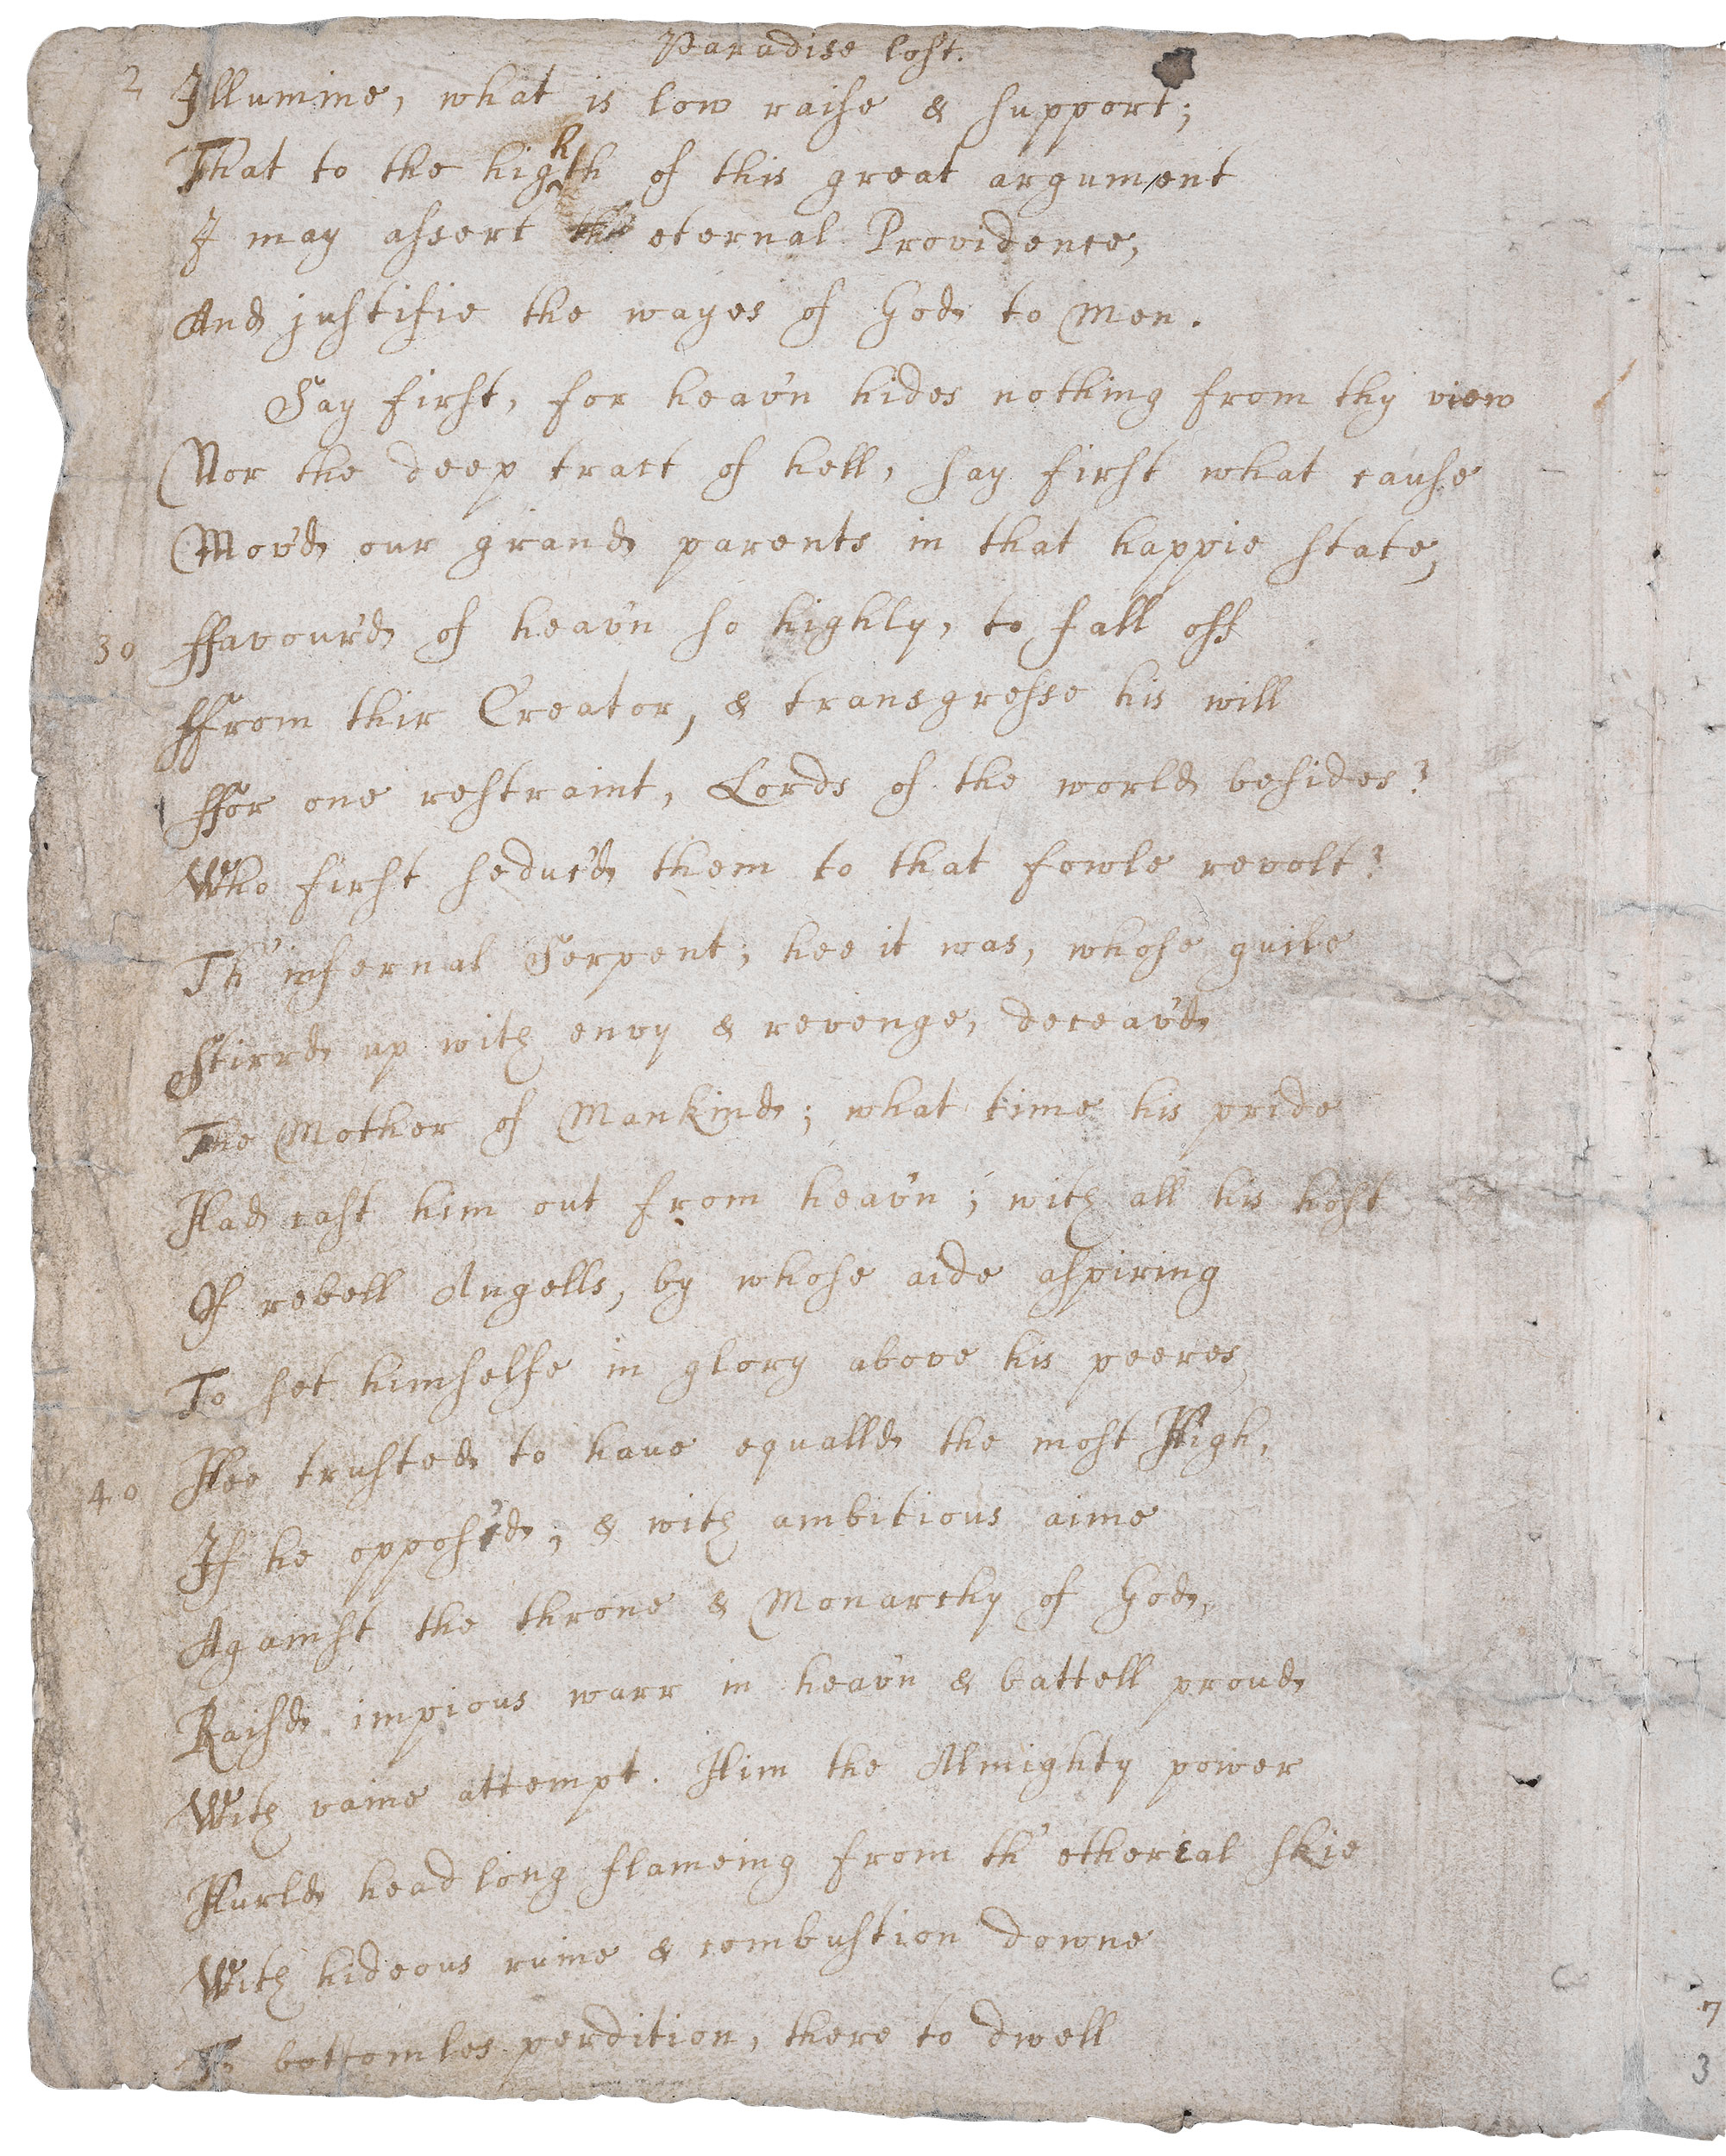 Paradise lost.
2 Illumine, what is low raise & support;
That to the highth of this great argument
I may assert the eternal Providence,
And justifie the wayes of God to Men.
Say first, for heav'n hides nothing from thy view
Nor the deep tract of hell, say first what cause
Mov'd our grand parents in that happie state,
30 ffavour'd of heav'n so highly, to fall off
ffrom thir Creator, & transgresse his will
ffor one restraint, Lords of the world besides?
Who first seduc'd them to that fowle revolt?
Th' infernal Serpent; hee it was, whose guile
Stirrd up with envy & revenge, deceav'd
The Mother of Mankind; what time his pride
Had cast him out from heav'n; with all his host
Of rebell Angells, by whose aide aspiring
To set himselfe in glory above his peeres,
Hee trusted to haue equalld the most High,
40 If he oppos'd; & with ambitious aime
Against the throne & Monarchy of God,
Raisd impious warr in heav'n & battell proud
With vaine attempt. Him the Almighty power
Hurld headlong flameing from th' ethereal skie
With hideous ruine & combustion downe
To bottomles perdition, there to dwell
7
3